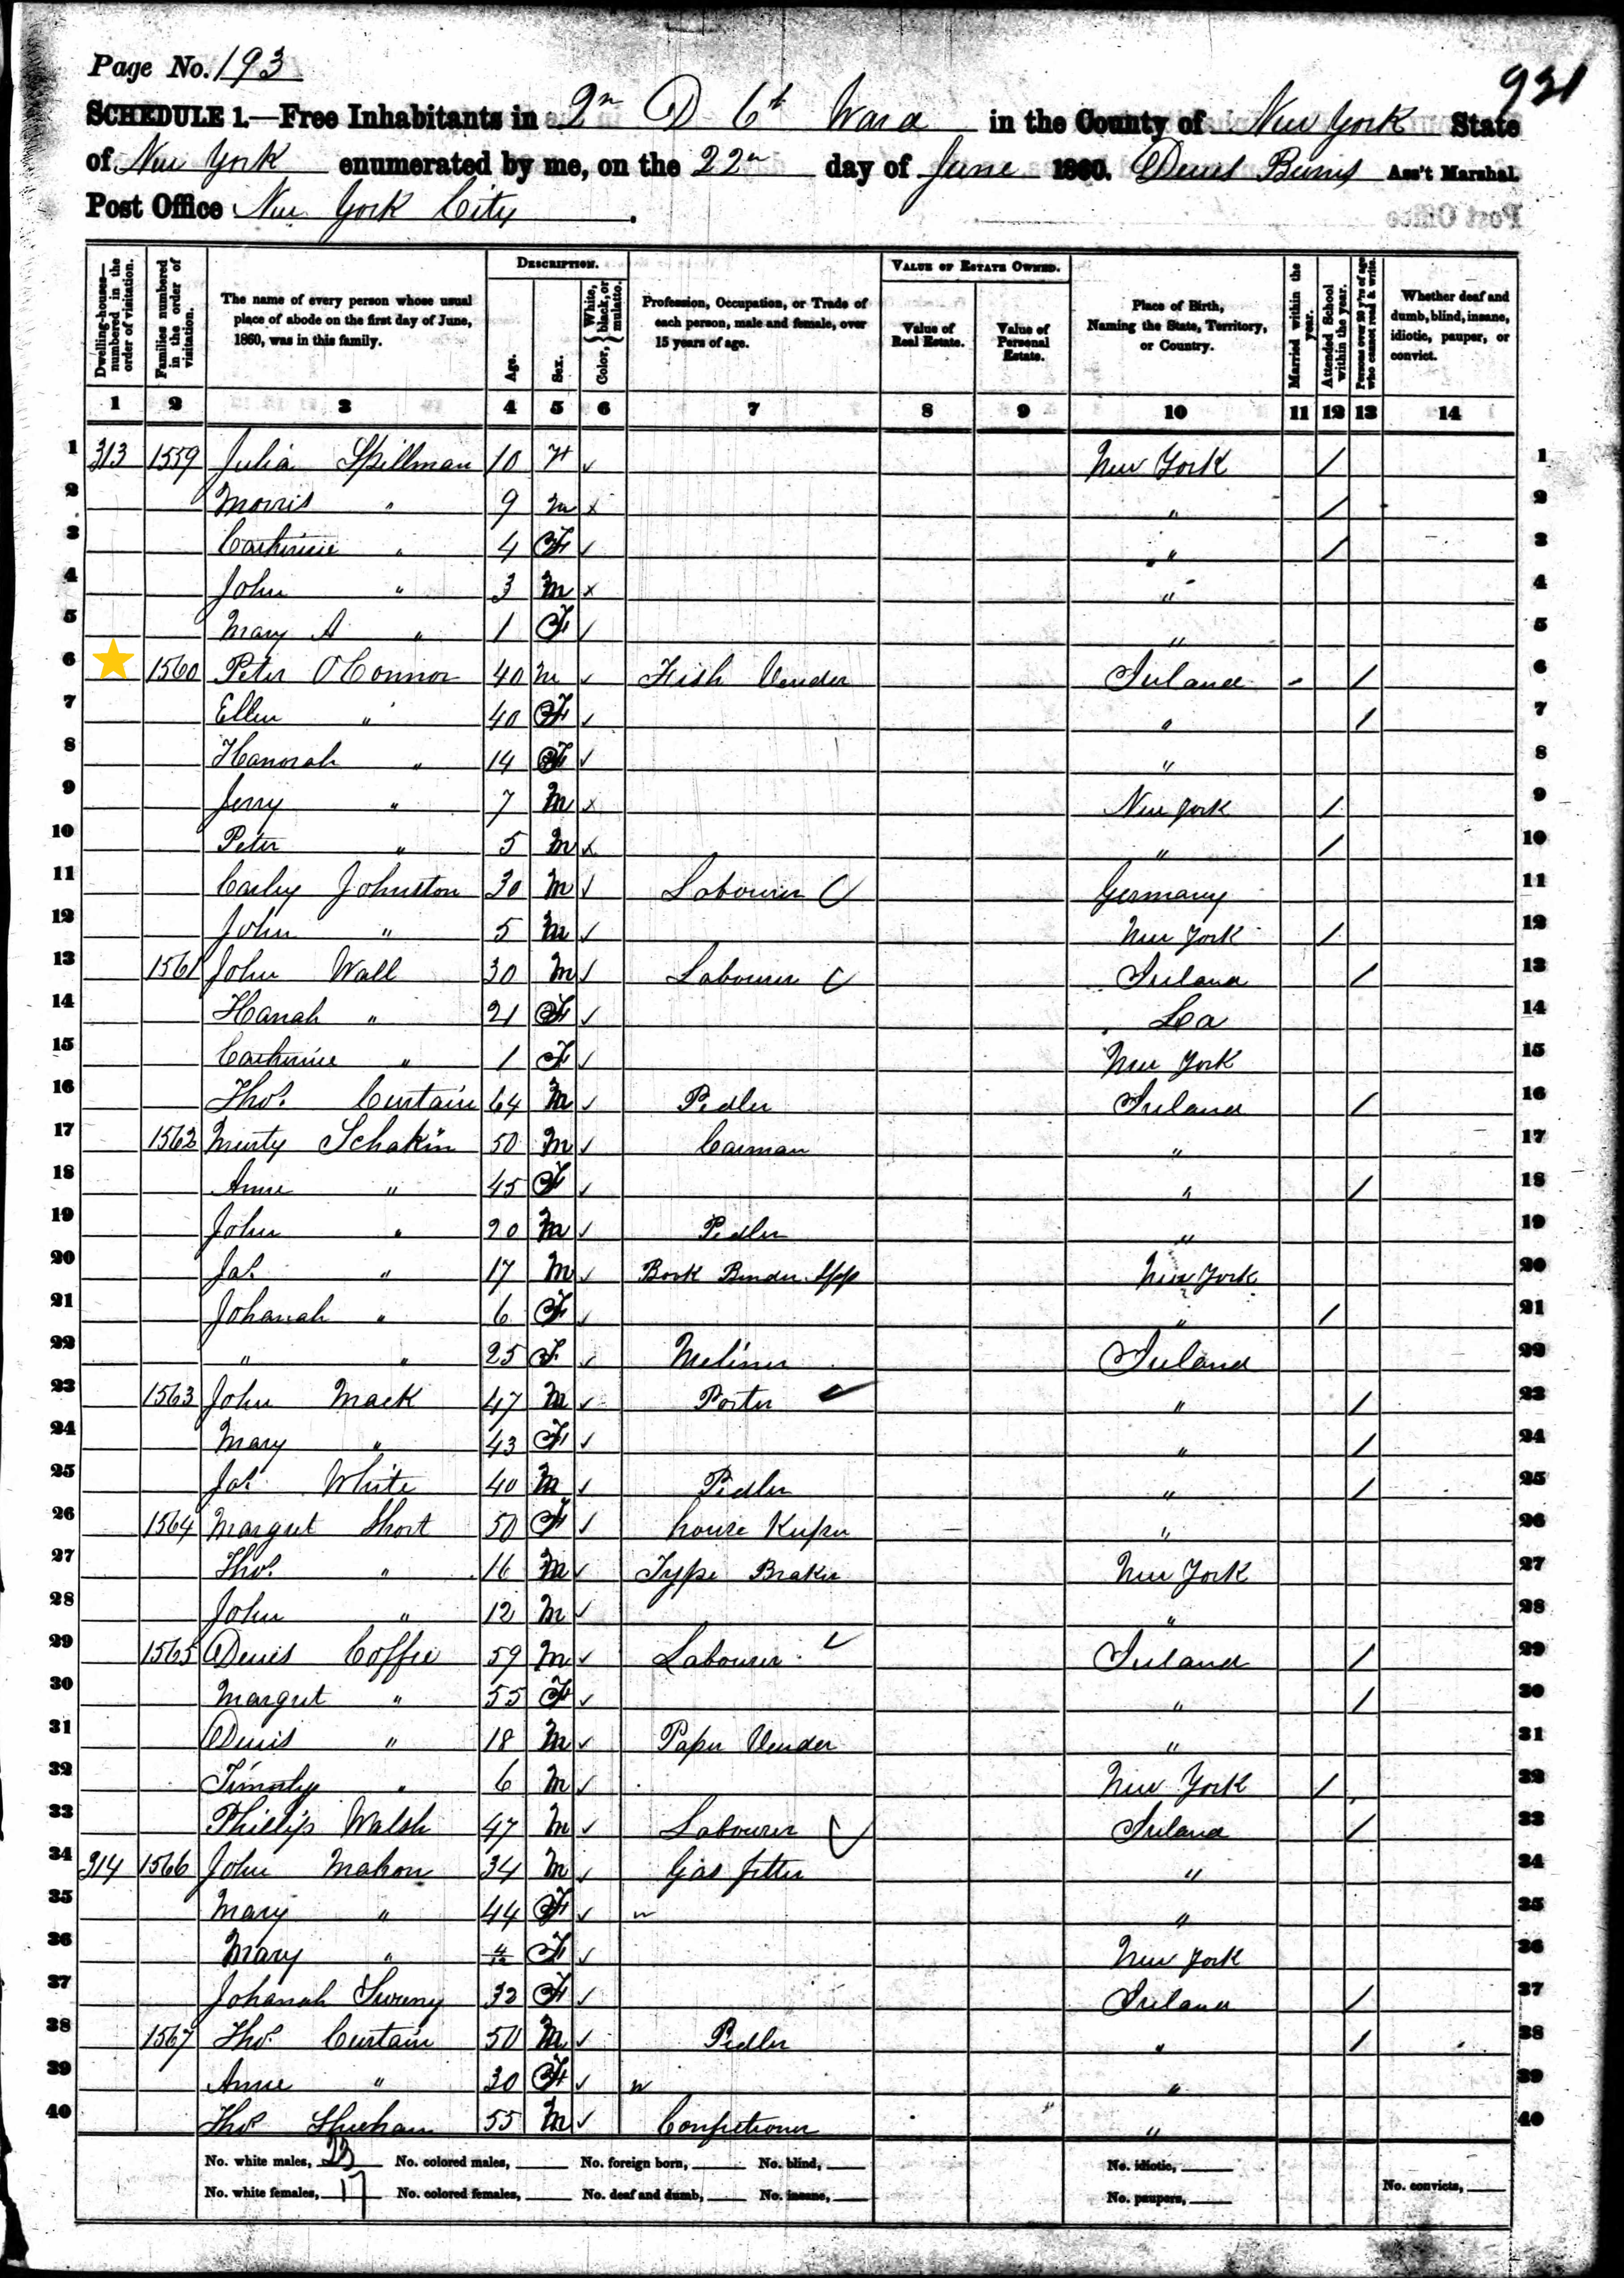 Page No. 193
931
SCHEDULE 1.—Free Inhabitants in 2n D 6t Ward in the County of New York State
of New York enumerated by me, on the 22n day of June 1860. Denis Burns Ass't Marshal.
Post Office New York City .
Dwelling-houses—numbered in the order of visitation.
Families numbered in the order of visitation.
The name of every person whose usual place of abode on the first day of June, 1860, was in this family.
DESCRIPTION.
Age.
Sex.
Color, { White, black, or mulatto.
Profession, Occupation, or Trade of each person, male and female, over 15 years of age.
VALUE OF ESTATE OWNED.
Value of Real Estate.
Value of Personal Estate.
Place of Birth, Naming the State, Territory, or Country.
Married within the year.
Attended School within the year.
Persons over 20 y'rs of age who cannot read & write.
Whether deaf and dumb, blind, insane, idiotic, pauper, or convict.
1 2 3 4 5 6 7 8 9 10 11 12 13 14
1 313 1559 Julia Spillman 10 F New York / 1
2 Morris " 9 m " / 2
3 Catherine " 4 F " / 3
4 John " 3 m " 4
5 Mary A " 1 F " 5
6 1560 Peter O'Connor 40 m Fish Vender Ireland / 6
7 Ellen " 40 F " / 7
8 Hanorah " 14 F " 8
9 Jerry " 7 M New York / 9
10 Peter " 5 M " / 10
11 Johnston 30 M Labourer Germany 11
12 John " 5 M New York / 12
13 1561 John Wall 30 M Labourer Ireland / 13
14 Hanah " 21 F La 14
15 Catherine " 1 F New York 15
16 Thos. Curtain 64 M Pedler Ireland / 16
17 1562 Murty Schakin 50 M Carman " 17
18 Anne " 45 F " / 18
19 John " 20 M Pedler " 19
20 Jas. " 17 M Book Binder App New York 20
21 Johanah " 6 F " / 21
22 " " 25 F Meliner Ireland 22
23 1563 John Mack 47 M Porter " / 23
24 Mary " 43 F " / 24
25 Jas. White 40 M Pedler " / 25
26 1564 Margret Short 50 F house Keeper " 26
27 Thos. " 16 M Type Braker New York 27
28 John " 12 M " 28
29 1565 Denis Coffee 59 M Labourer Ireland / 29
30 Margret " 55 F " / 30
31 Denis " 18 M Paper Vender " 31
32 Timothy " 6 M New York / 32
33 Phillip Walsh 47 M Labourer Ireland / 33
34 314 1566 John Mahon 34 M Gas fitter " 34
35 Mary " 44 F " " 35
36 Mary " F New York 36
37 Johanah Sweeny 32 F Ireland / 37
38 1567 Thos. Curtain 50 M Pedler " / 38
39 Anne " 30 F " " 39
40 Thos Sheehan 55 M Confetioner " 40
No. white males, 23 No. colored males, No. foreign born, No. blind, No. idiotic,
No. white females, 17 No. colored females, No. deaf and dumb, No. insane, No. paupers, No. convicts,